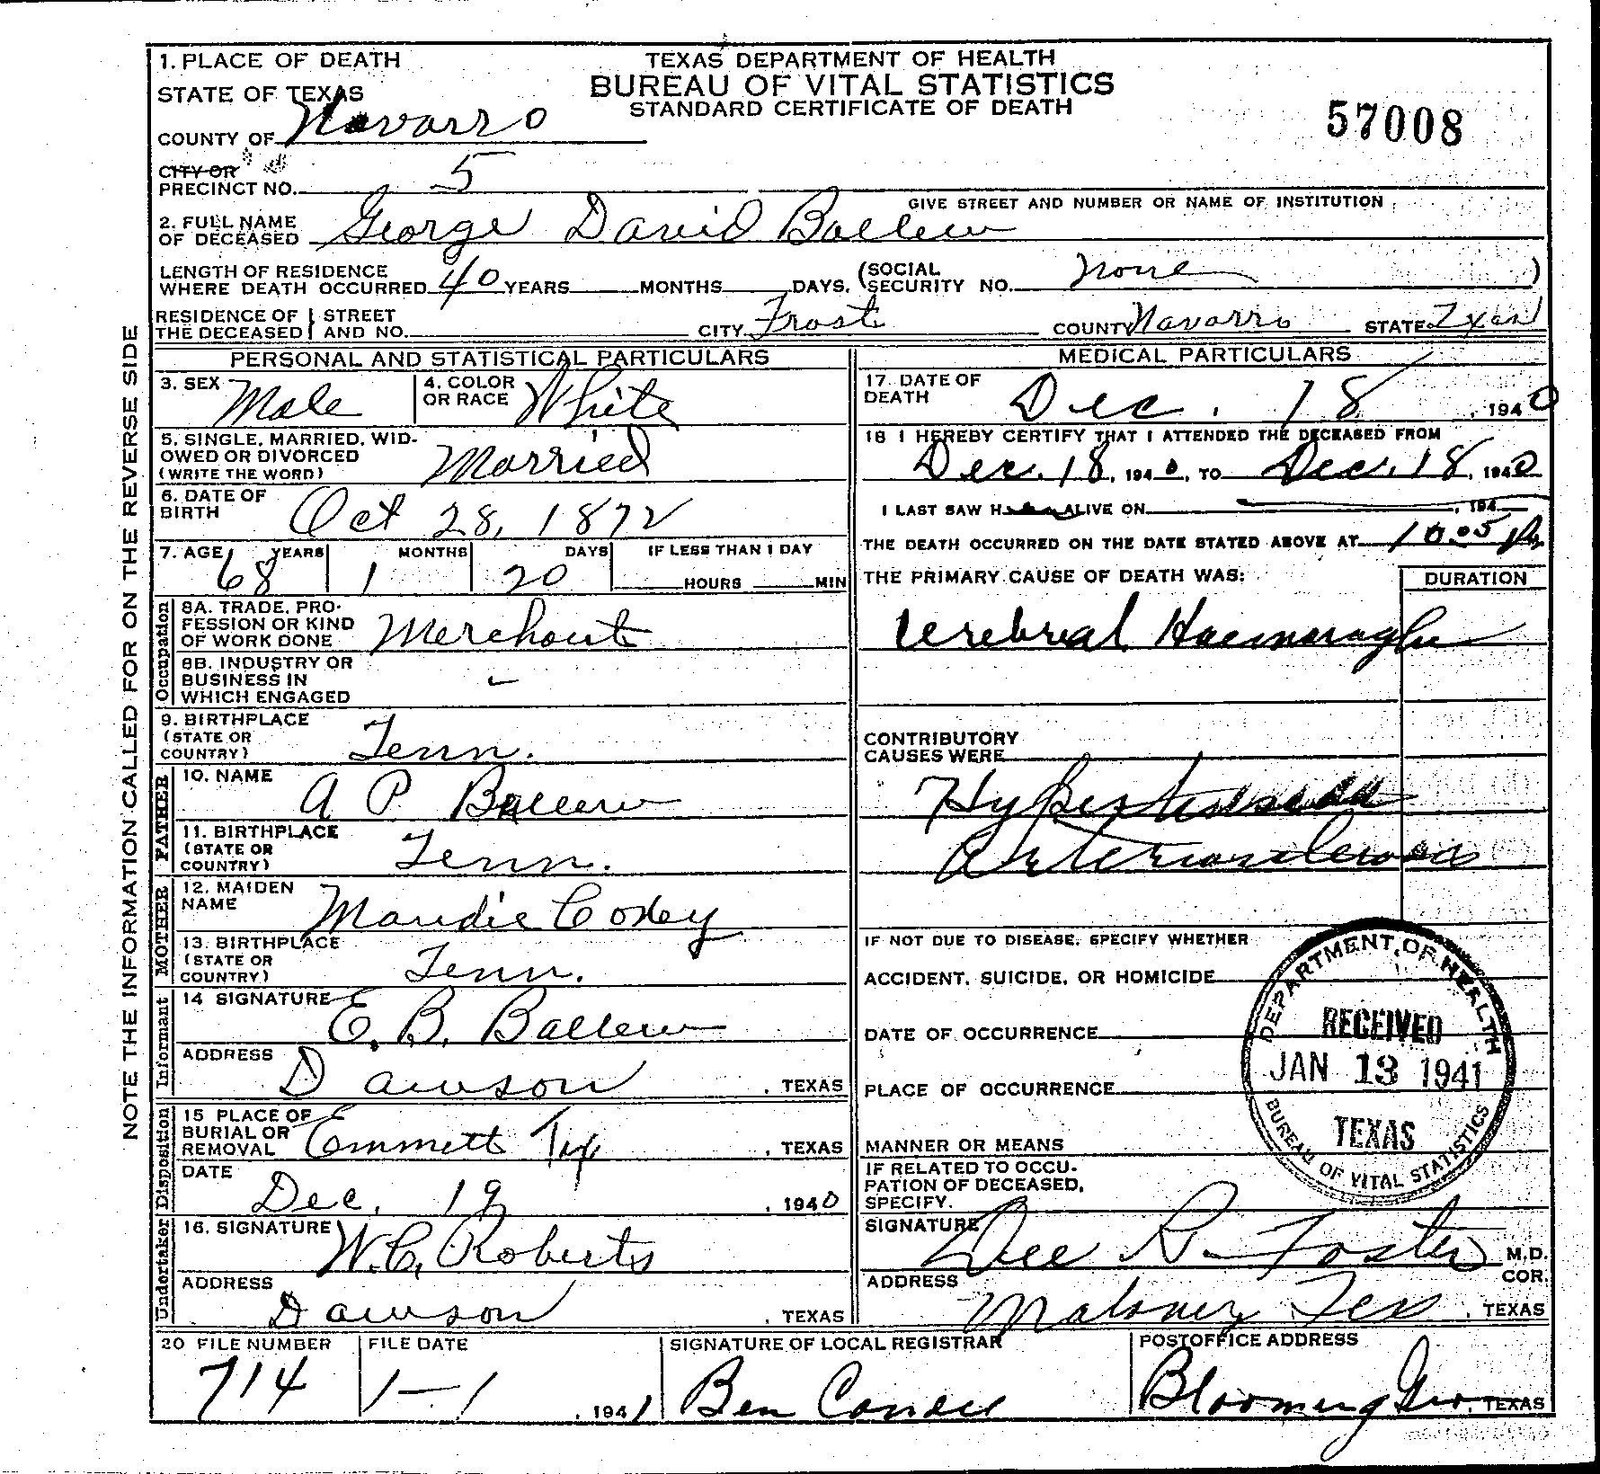 1. PLACE OF DEATH
STATE OF TEXAS
COUNTY OF Navarro
CITY OR
PRECINCT NO. 5
TEXAS DEPARTMENT OF HEALTH
BUREAU OF VITAL STATISTICS
STANDARD CERTIFICATE OF DEATH
57008
GIVE STREET AND NUMBER OR NAME OF INSTITUTION
2. FULL NAME
OF DECEASED George David Ballew
LENGTH OF RESIDENCE
WHERE DEATH OCCURRED 40 YEARS MONTHS DAYS. (SOCIAL SECURITY NO. None )
RESIDENCE OF THE DECEASED STREET AND NO. CITY Frost COUNTY Navarro STATE Texas
NOTE THE INFORMATION CALLED FOR ON THE REVERSE SIDE
PERSONAL AND STATISTICAL PARTICULARS
3. SEX Male
4. COLOR OR RACE White
5. SINGLE, MARRIED, WID-
OWED OR DIVORCED
(WRITE THE WORD) Married
6. DATE OF
BIRTH Oct 28, 1872
7. AGE 68 YEARS 1 MONTHS 20 DAYS IF LESS THAN 1 DAY
HOURS MIN
Occupation
8A. TRADE, PRO-
FESSION OR KIND
OF WORK DONE Merchant
8B. INDUSTRY OR
BUSINESS IN
WHICH ENGAGED -
9. BIRTHPLACE
(STATE OR
COUNTRY) Tenn.
FATHER
10. NAME A P Ballew
11. BIRTHPLACE
(STATE OR
COUNTRY) Tenn.
MOTHER
12. MAIDEN
NAME Maudie
13. BIRTHPLACE
(STATE OR
COUNTRY) Tenn.
Informant
14 SIGNATURE E. B. Ballew
ADDRESS Dawson , TEXAS
Disposition
15 PLACE OF
BURIAL OR
REMOVAL Emmett Tex , TEXAS
DATE Dec. 19 , 1940
Undertaker
16. SIGNATURE W. C. Roberts
ADDRESS Dawson , TEXAS
MEDICAL PARTICULARS
17. DATE OF
DEATH Dec. 18 , 1940
18 I HEREBY CERTIFY THAT I ATTENDED THE DECEASED FROM
Dec. 18, 1940, TO Dec. 18, 1940
I LAST SAW H ALIVE ON , 194
THE DEATH OCCURRED ON THE DATE STATED ABOVE AT 10:05 P.
THE PRIMARY CAUSE OF DEATH WAS: DURATION
Cerebral Haemoraghe
CONTRIBUTORY
CAUSES WERE
Hypertension
Arteriosclerosis
IF NOT DUE TO DISEASE, SPECIFY WHETHER
ACCIDENT, SUICIDE, OR HOMICIDE
DATE OF OCCURRENCE
PLACE OF OCCURRENCE
MANNER OR MEANS
IF RELATED TO OCCU-
PATION OF DECEASED,
SPECIFY.
DEPARTMENT OF HEALTH
RECEIVED
JAN 13 1941
TEXAS
BUREAU OF VITAL STATISTICS
SIGNATURE Dee R Foster M.D.
COR.
ADDRESS Maloney Tex , TEXAS
20 FILE NUMBER 714
FILE DATE 1-1 , 1941
SIGNATURE OF LOCAL REGISTRAR Ben
POSTOFFICE ADDRESS Blooming Gro. TEXAS